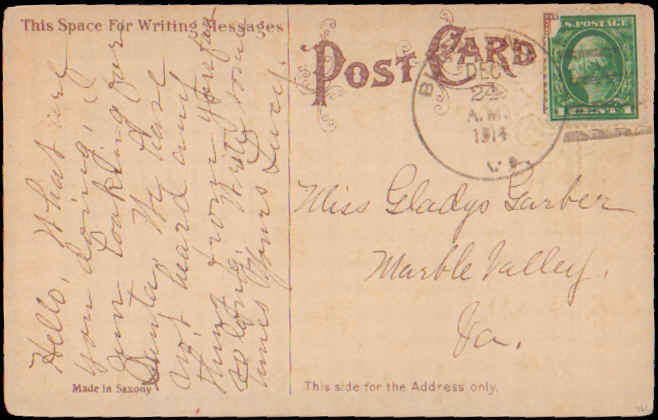 This Space For Writing Messages
POST CARD
U.S. POSTAGE
1 CENT 1
DEC
24
A.M.
1914
Hello, What are
you doing, I
am looking for
Santa. We have
not heard any
thing from you for
so long. Write some
times Yours Lucy.
Miss Gladys Garber
Marble Valley.
Va.
Made in Saxony
This side for the Address only.